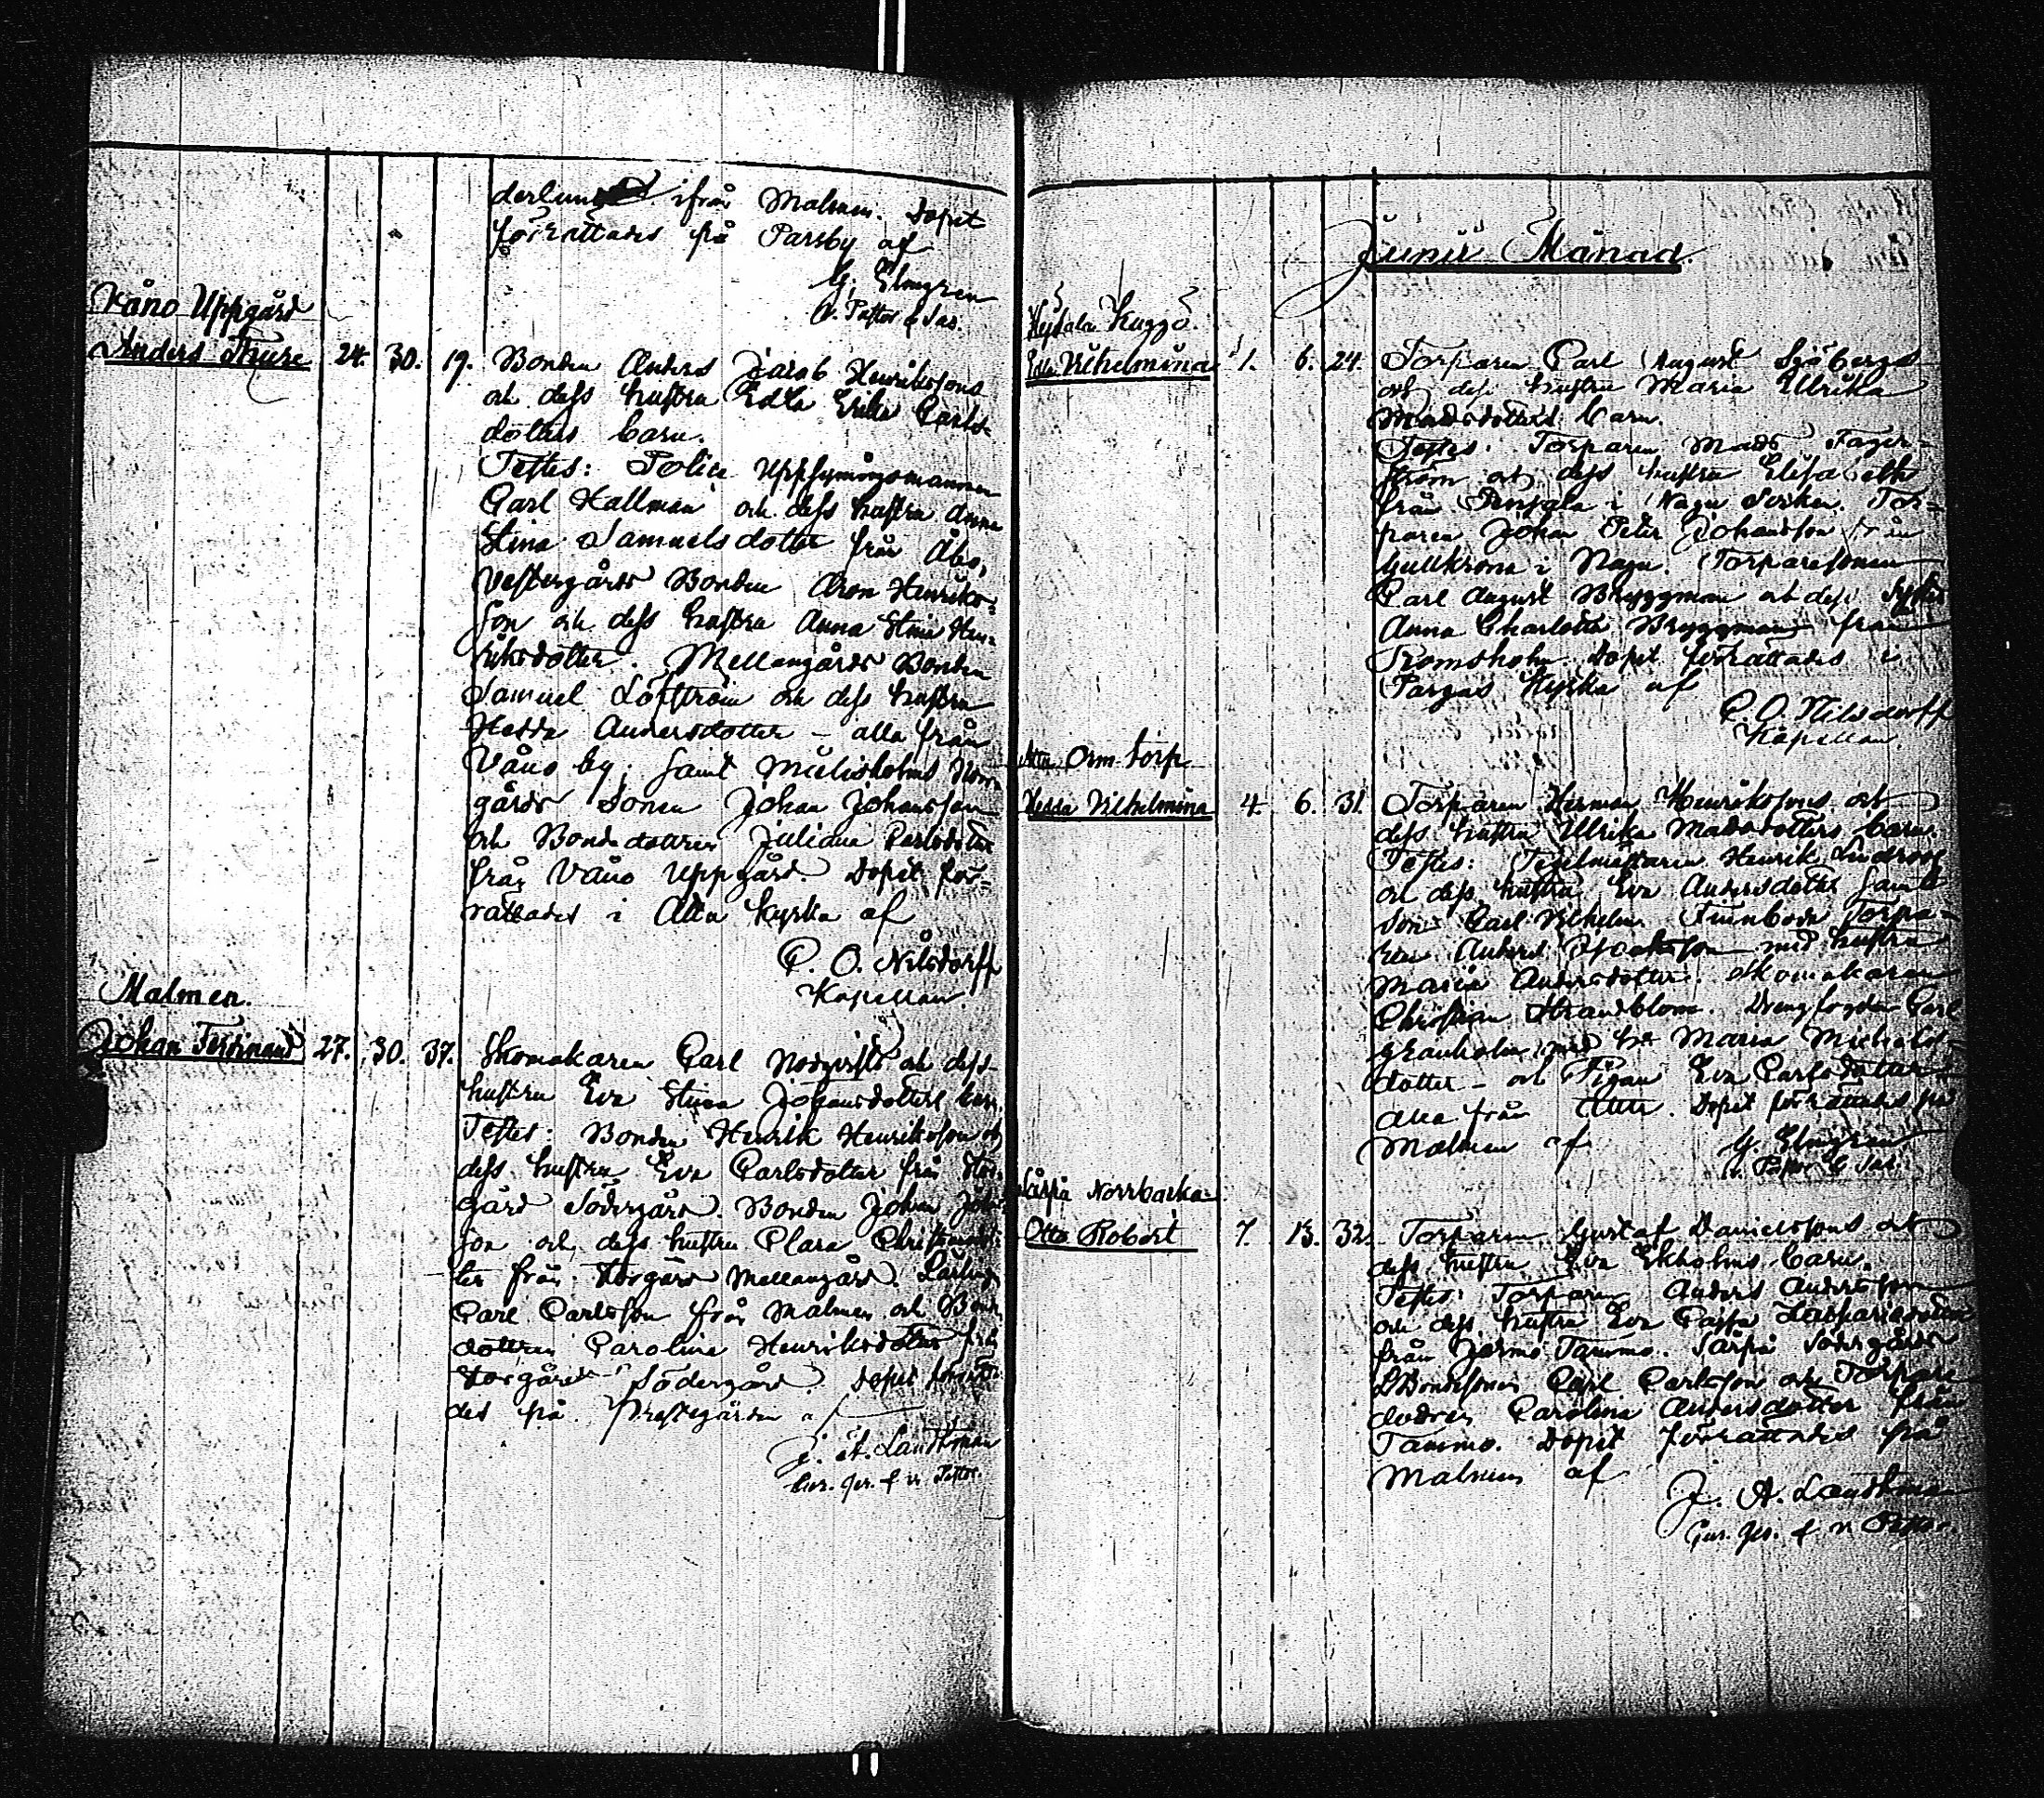 derlund ifrån Malmen. Dopet
förrättades på Parsby af
G. Elmgren
v. Pastor & Sac.
Våno Uppgård
Anders Thure 24. 30. 19. Bonden Anders Jacob Henrikssons
och dess hustru Edla Erika Carls-
dotters barn.
Testes: Police Uppsyningsmannen
Carl Hallman och dess hustru Anna
Stina Samuelsdotter från Åbo,
Vestergårds Bonden Aron Henriks-
son och dess hustru Anna Stina Hen-
riksdotter. Mellangårds Bonden
Samuel Löfström och dess hustru
Hedda Andersdotter - alla från
Våno by; samt Mielisholms Norr-
gårds Sonen Johan Johansson
och Bondedottren Juliana Carlsdotter
från Våno Uppgård. Dopet för-
rättades i Atta Kyrka af
C. O. Nilsdorff
Kapellan
Malmen.
Johan Ferdinand 27. 30. 37. Skomakaren Carl Nordqvists och dess
hustru Eva Stina Johansdotters barn.
Testes: Bonden Henrik Henriksson och
dess hustru Eva Carlsdotter från
gård Södergård. Bonden Johan
son och dess hustru Clara
ter från Storgård Mellangård.
Carl Carlsson från Malmen och Bonde
dottren Carolina Henriksdotter från
Storgård Södergård. Dopet förrätta-
des på Prestegården af
J. A. Landtman
Junii Månad.
Heisala Kuggö.
Edla Vilhelmina 1. 6. 24. Torparen Carl August Sjöbergs
och dess hustru Maria Ulrika
Madsdotters barn.
Testes: Torparen Mads Fager-
ström och dess hustru Elisabeth
från Pensala i Nagu Socken. Tor-
paren Johan Peter Johansson från
Gullkrona i Nagu. Torparesonen
Carl August Bryggman och dess Syster
Anna Charlotta Bryggman från
Tromsholm. Dopet förrättades i
Pargas Kyrka af
C. O. Nilsdorff
Kapellan.
Atta Orm torp
Hedda Vilhelmina 4. 6. 31. Torparen Herman Henrikssons och
dess hustru Ulrika Madsdotters barn.
Testes: Tegelmästaren Henrik Lindroos
och dess hustru Eva Andersdotter samt
son Carl Vilhelm. Finnboda Torpa-
ren Anders med hustru
Maria Andersdotter. Skomakaren
Christian Strandblom. Drengfogden Carl
Granholm med h:u Maria Michels-
dotter - och Pigan Eva Carlsdotter
alla från Atta. Dopet förrättades på
Malmen af G. Elmgren
v. Pastor & Sac.
Särpä Norrbacka
Otto Robert 7. 13. 32. Torparen Gustaf Danielssons och
dess hustru Eva Ekholms barn.
Testes: Torparen Anders Andersson
och dess hustru Eva Cajsa
från Jermo Tammo. Särpä Södergårds
Bondesonen Carl Carlsson och Torpare
dottren Carolina Andersdotter från
Tammo. Dopet förrättades på
Malmen af
J. A. Landtman